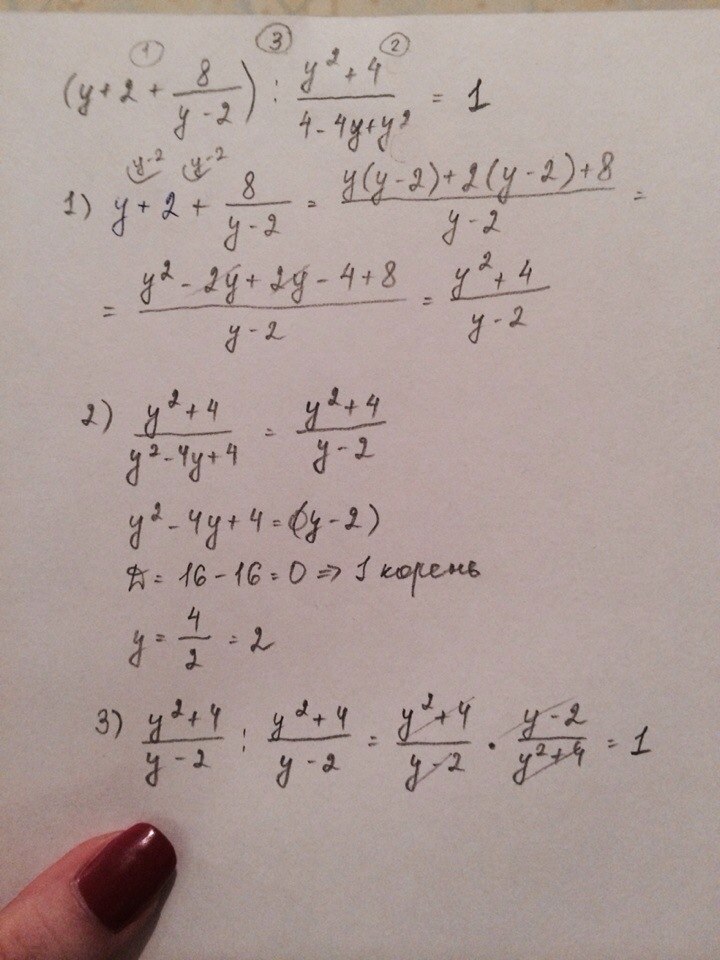 ① ③ ②
(y+2+\frac{8}{y-2}) : \frac{y^2+4}{4-4y+y^2} = 1
1) y+2+\frac{8}{y-2} = \frac{y(y-2)+2(y-2)+8}{y-2} =
= \frac{y^2-2y+2y-4+8}{y-2} = \frac{y^2+4}{y-2}
2) \frac{y^2+4}{y^2-4y+4} = \frac{y^2+4}{y-2}
y^2-4y+4=(y-2)
Д=16-16=0 ⇒ 1 корень
y=\frac{4}{2}=2
3) \frac{y^2+4}{y-2} : \frac{y^2+4}{y-2} = \frac{y^2+4}{y-2} · \frac{y-2}{y^2+4} = 1